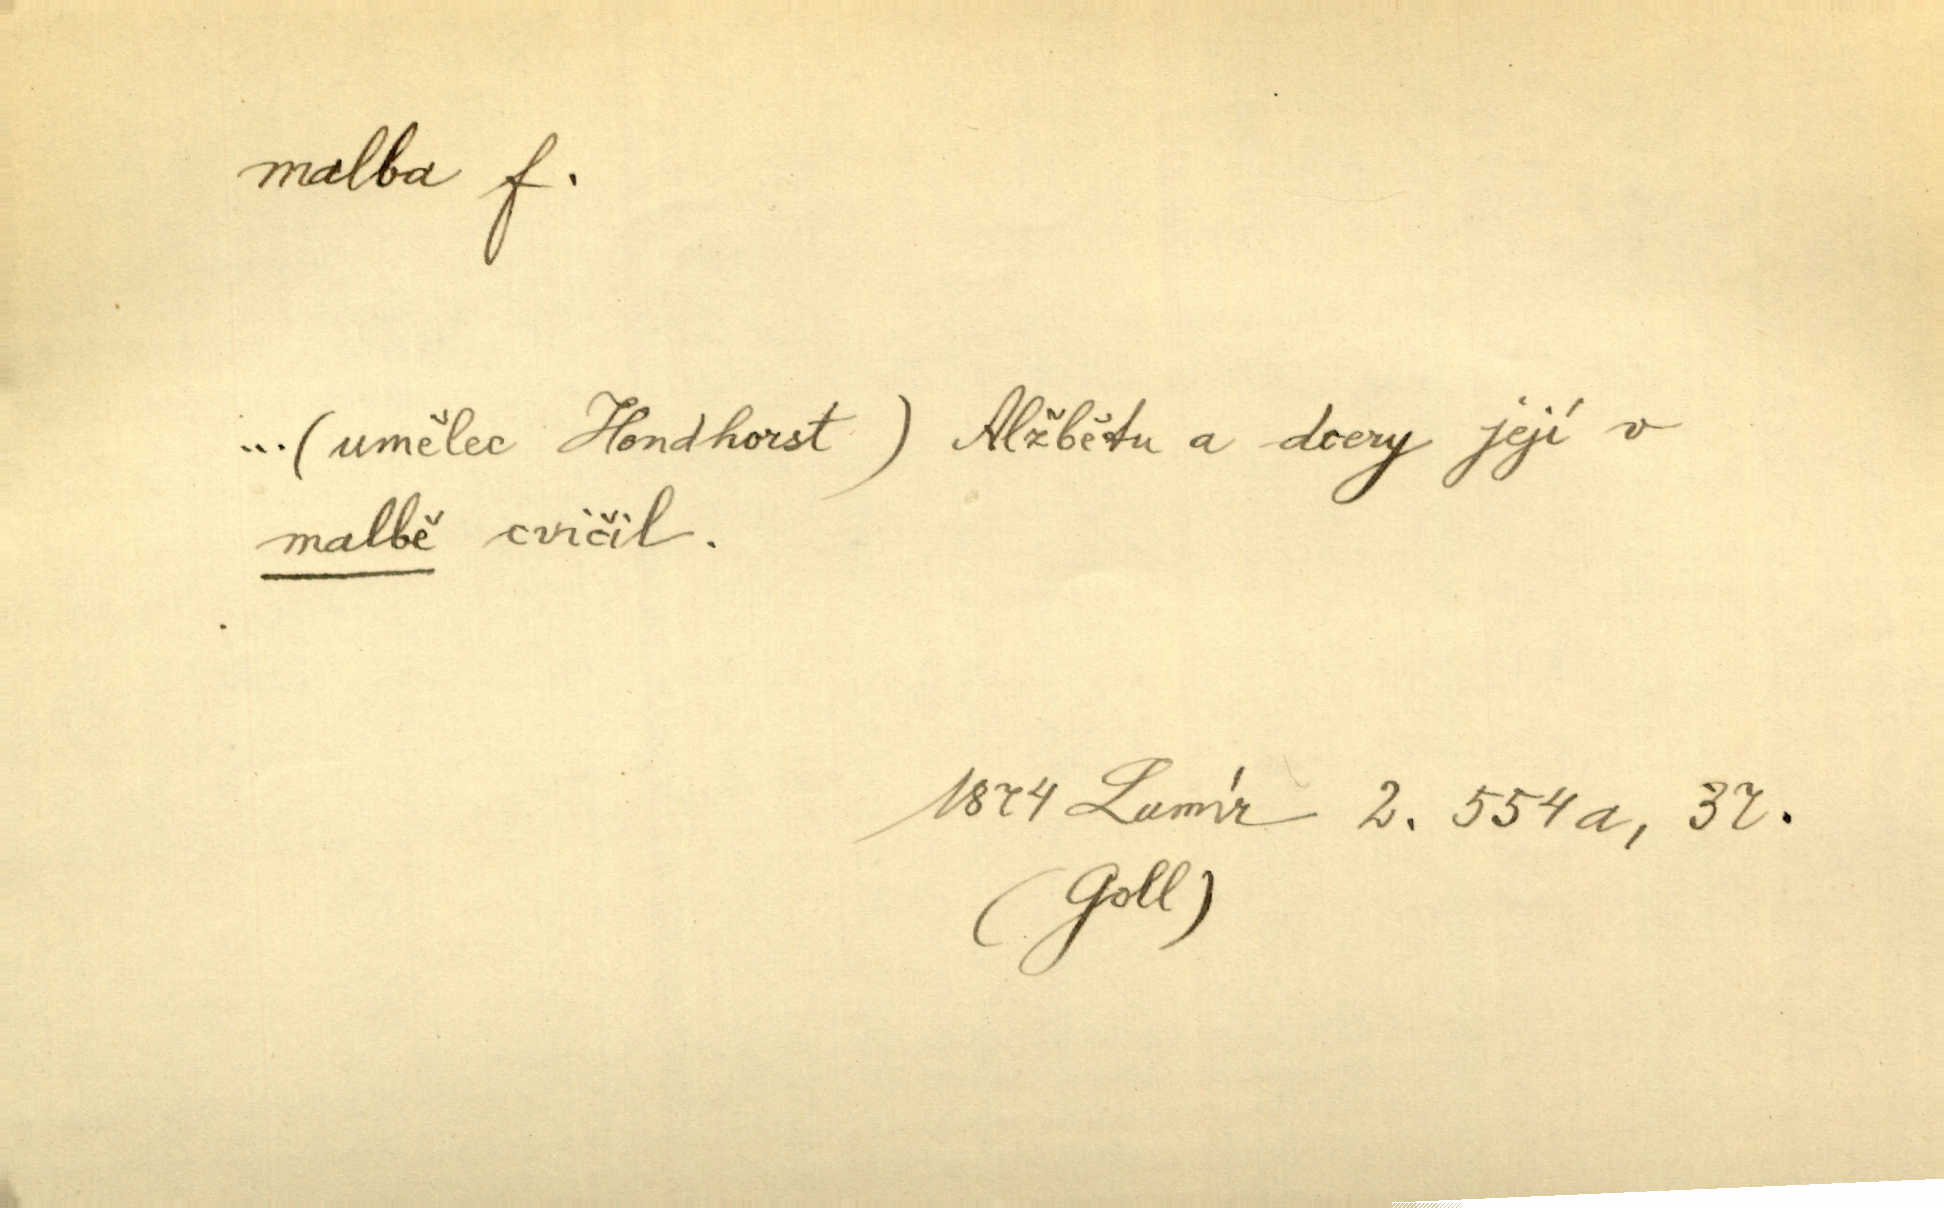 malba f.
...(umělec Hondhorst) Alžbětu a dcery její v
malbě cvičil.
1874 Lumír 2. 554a, 37.
(Goll)